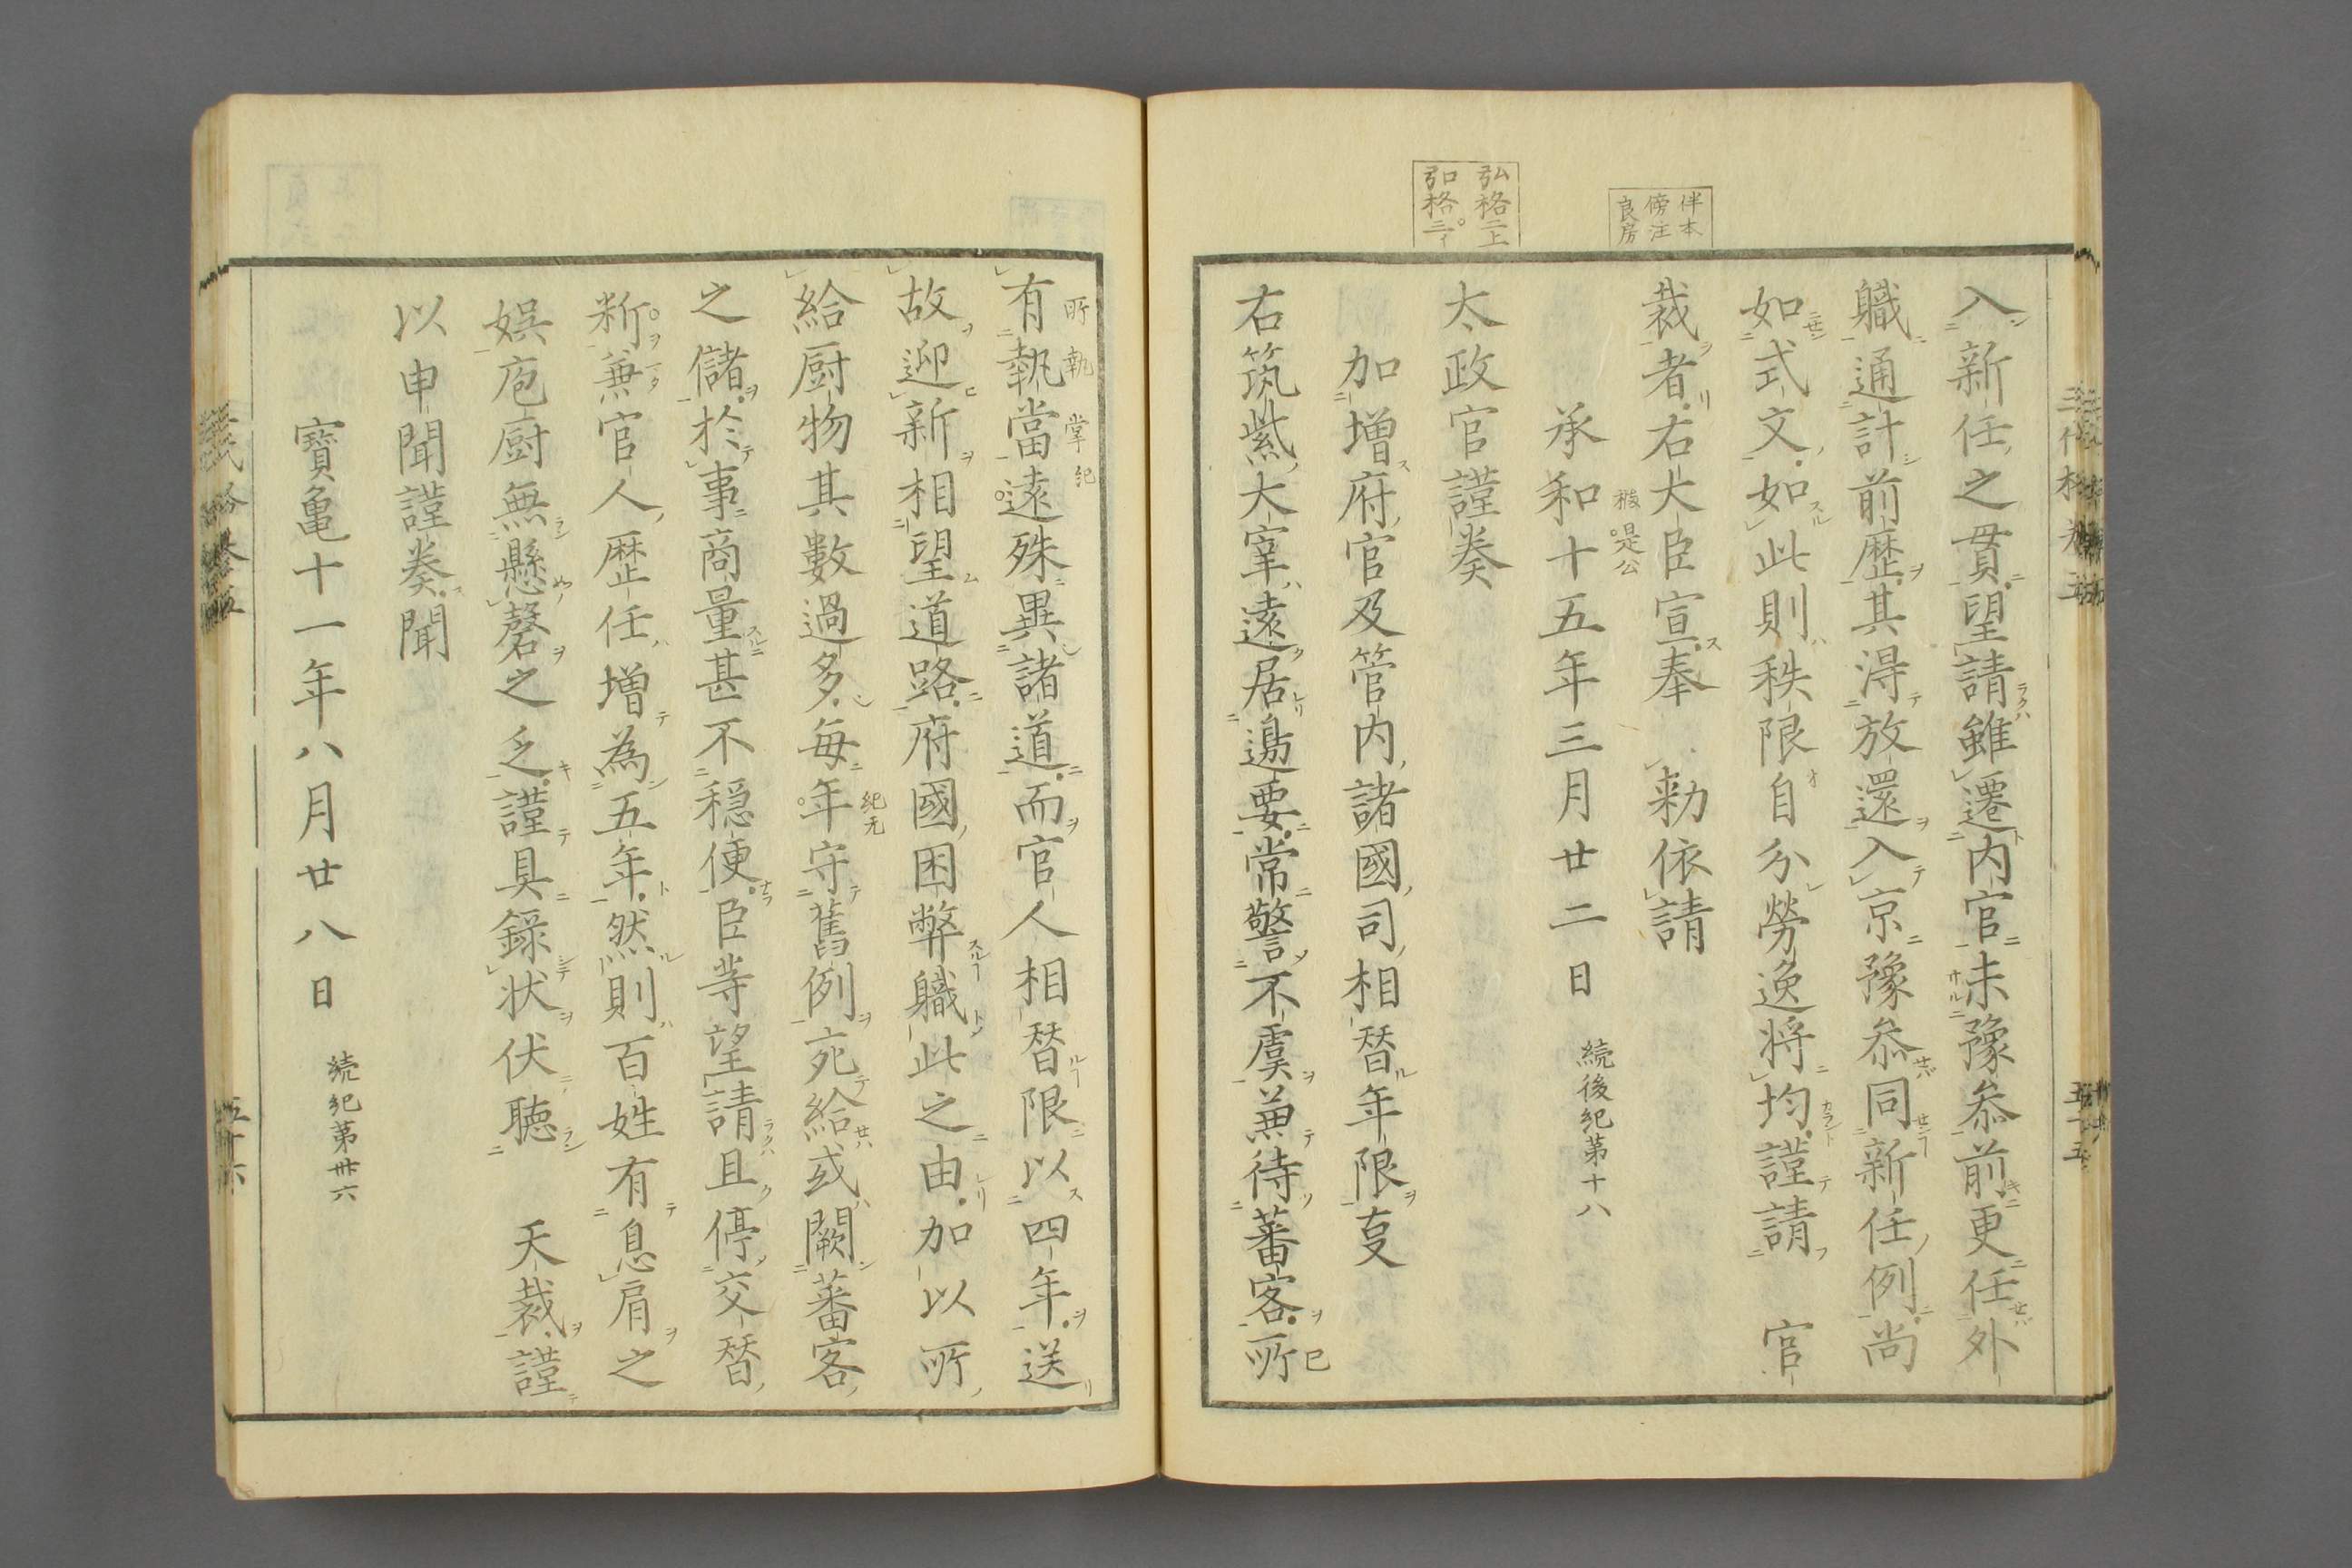 伴本
傍注
良房
弘格二上
弘格三イ
入新任之貫望請雖遷内官未豫叅前更任外
職通計前歴其得放還入京豫叅同新任例尚
如式文如此則秩限自分勞逸将均謹請　官
裁者右大臣宣奉　勅依請
承和十五年三月廿二日　続後紀第十八
太政官謹奏
加增府官及管内諸國司相替年限叓
右筑紫大宰遠居邊要常警不虞兼待蕃客所
有執當遠殊異諸道而官人相替限以四年送
所執掌紀
故迎新相望道路府國困弊職此之由加以所
給厨物其數過多毎年守舊例充給或闕蕃客
紀无
之儲於事商量甚不穏便臣等望請且停交替
断兼官人歴任增為五年然則百姓有息肩之
娯庖厨無懸磬之乏謹具録状伏聴　天裁謹
以申聞謹奏聞
寳亀十一年八月廿八日　続紀第卅六